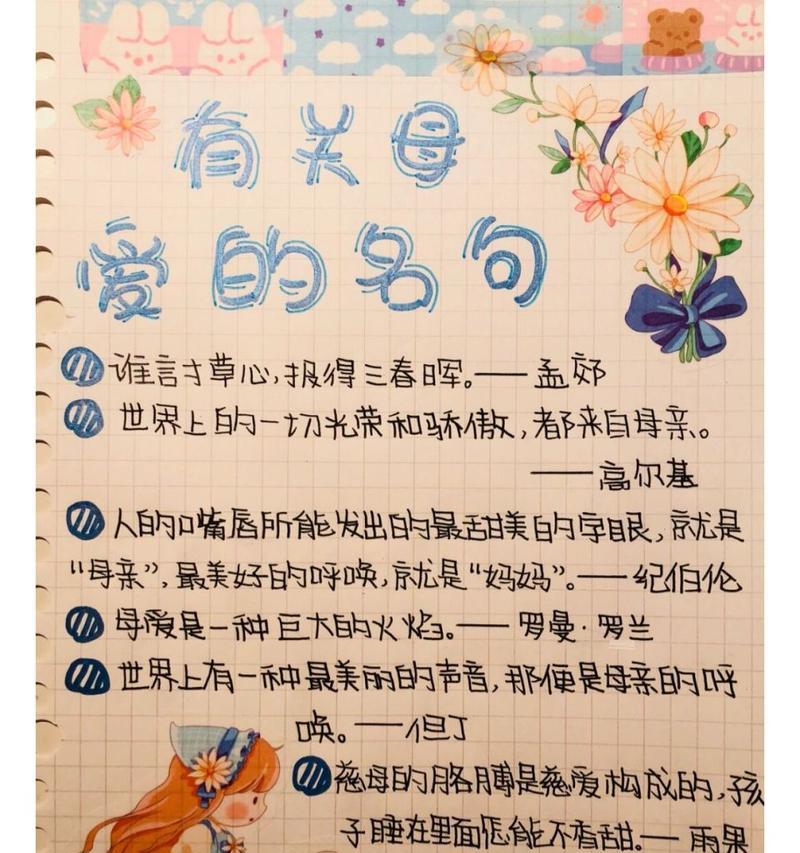 有关母
爱的名句
谁言寸草心,报得三春晖。——孟郊
世界上的一切光荣和骄傲,都来自母亲。
——高尔基
人的口嘴唇所能发出的最甜美的字眼,就是
“母亲”,最美好的呼唤,就是“妈妈”。——纪伯伦
母爱是一种巨大的火焰。——罗曼·罗兰
世界上有一种最美丽的声音,那便是母亲的呼
唤。——但丁
慈母的胳膊是慈爱构成的,孩
子睡在里面怎能不香甜。——雨果